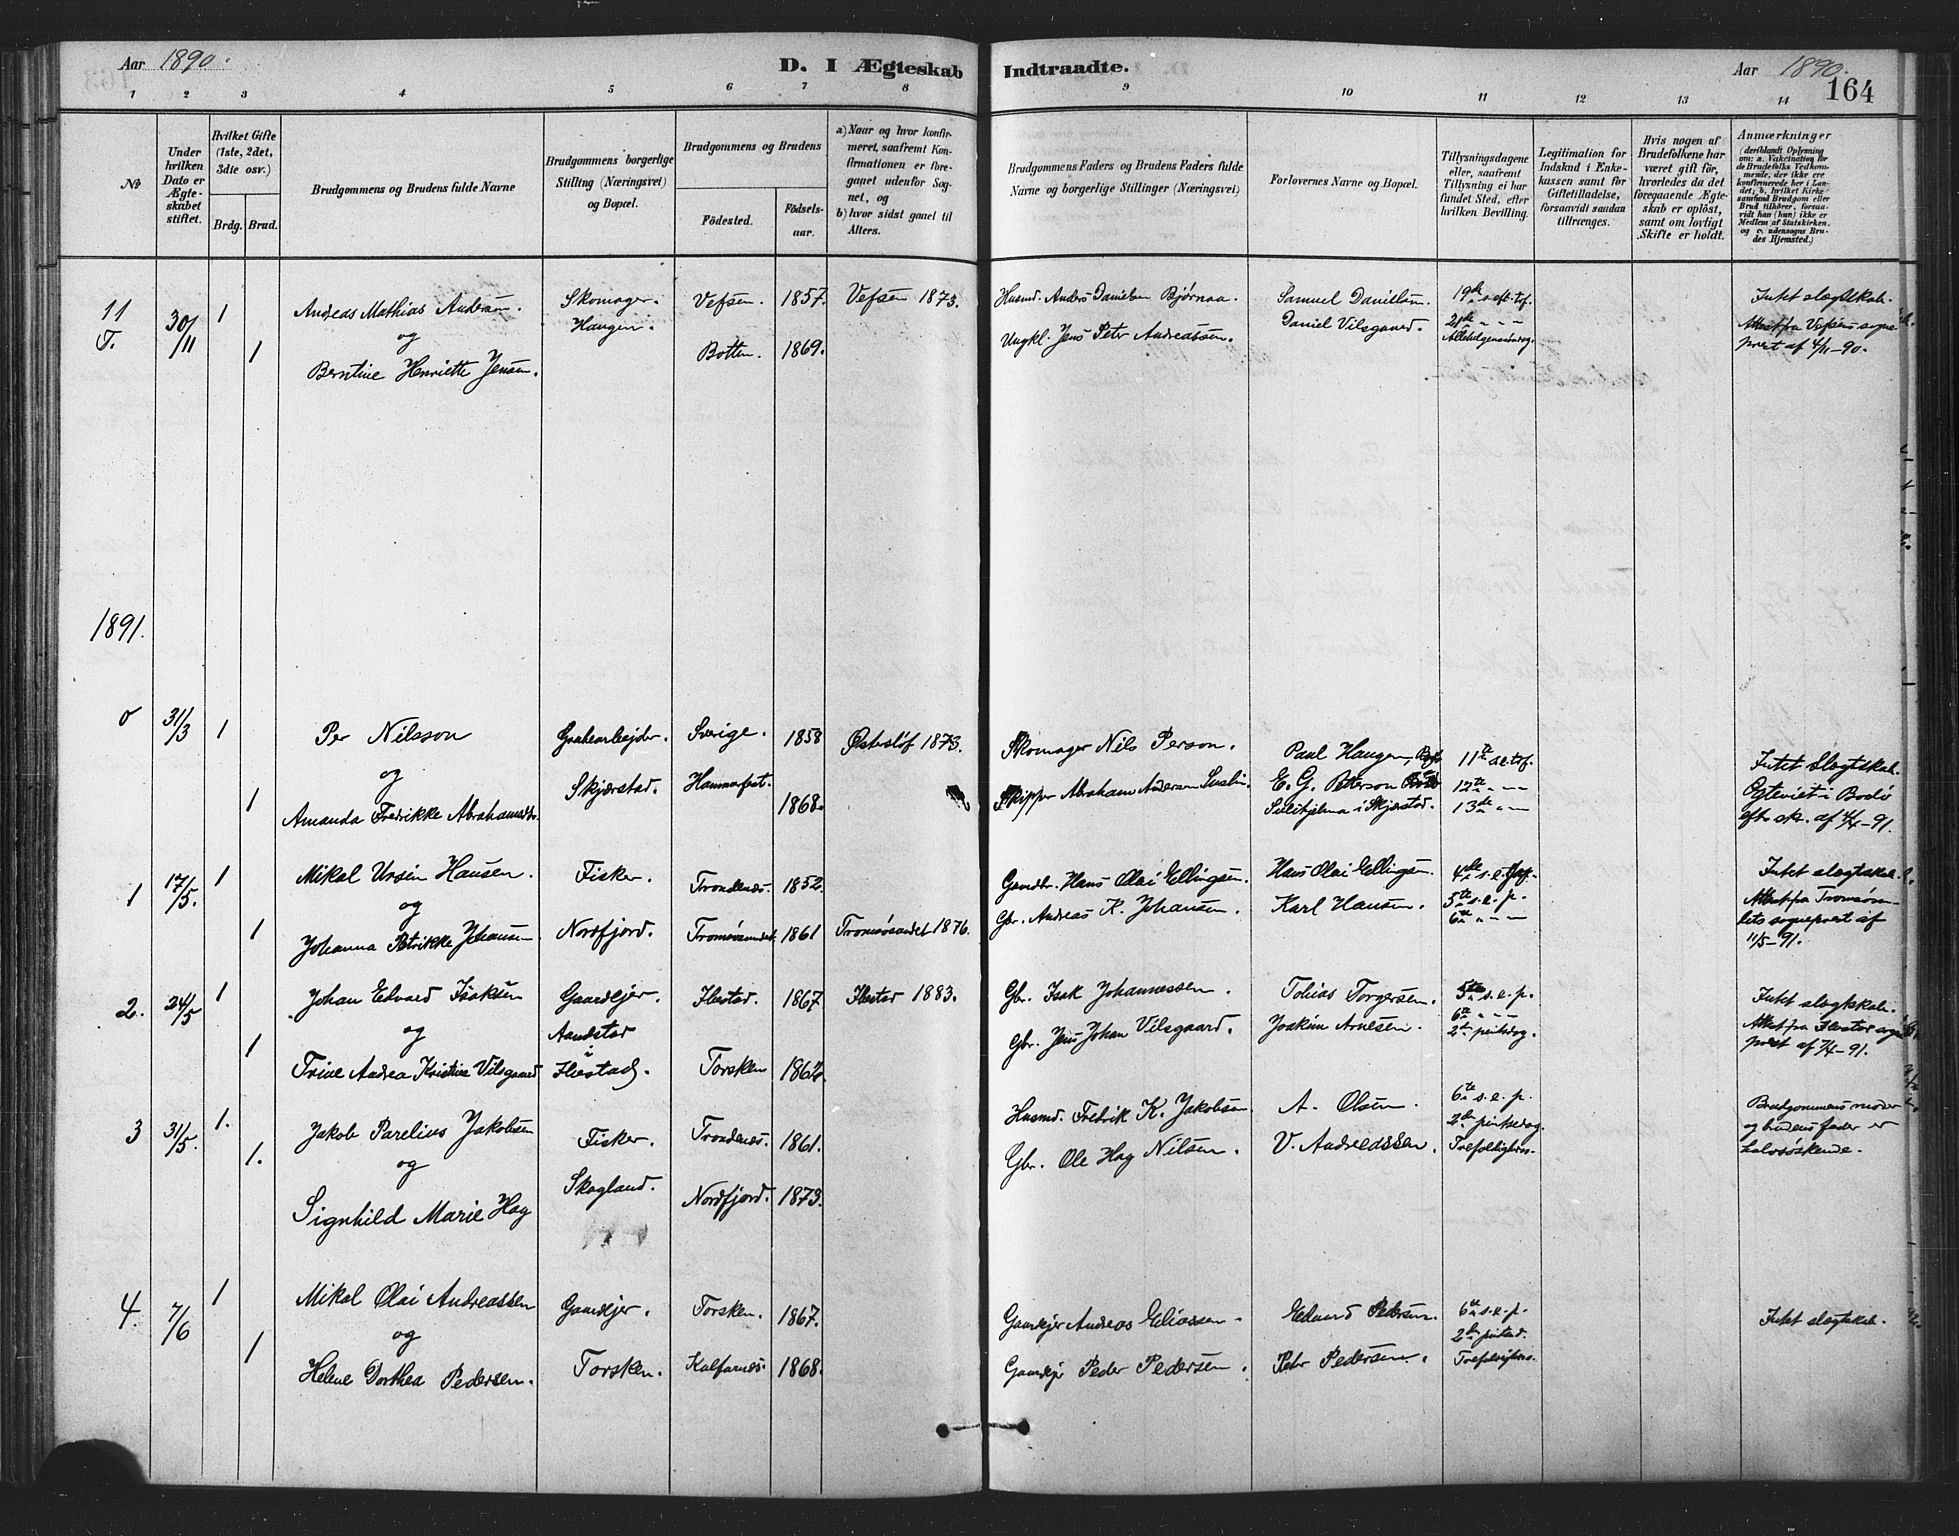 Aar 1890.
D. I Ægteskab Indtraadte.
Aar 1890.
164
1 2 3 4 5 6 7 8 9 10 11 12 13 14
No
Under hvilken Dato er Ægteskabet stiftet.
Hvilket Gifte (1ste, 2det, 3die osv.)
Brdg. Brud.
Brudgommens og Brudens fulde Navne
Brudgommens borgerlige Stilling (Næringsvei) og Bopæl.
Brudgommens og Brudens
Födested.
Födsels-aar.
a) Naar og hvor konfirmeret, saafremt Konfirmationen er foregaaet udenfor Sognet, og
b) hvor sidst gaaet til Alters.
Brudgommens Faders og Brudens Faders fulde Navne og borgerlige Stillinger (Næringsvei)
Forlovernes Navne og Bopæl.
Tillysningsdagene eller, saafremt Tillysning ei har fundet Sted, efter hvilken Bevilling.
Legitimation for Indskud i Enkekassen samt for Giftetilladelse, forsaavidt saadan tiltrænges.
Hvis nogen af Brudefolkene har været gift för, hvorledes da det foregaaende Ægteskab er oplöst, samt om lovligt Skifte er holdt.
Anmærkninger
(deriblandt Oplysning om: a. Vakcination for de Brudefolks Vedkommende, der ikke ere konfirmerede her i Landet; b. hvilket Kirkesamfund Brudgom eller Brud tilhörer, forsaavidt han (hun) ikke er Medlem af Statskirken, og c. udensogns Brudes Hjemsted.)
11 T. 30/11 1 Andreas Mathias Andersen. Skomager. Vefsen. 1857. Vefsen 1873. Husmd. Anders Danielsen Bjørnaa. Samuel Danielsen. 19de s. eft. tref. Intet slægtskab.
og Haugen.
1 Berntine Henriette Jensen. Botten. 1869. Ungkl. Jens Peter Andreassen. Daniel Vilsgaard. 21de " " " Allehelgensdag. Attest fra Vefsens sogneprest af 4/11-90.
1891.
0 31/3 1 Per Nilsson Grubearbejder. Sverige. 1858 Østesløf 1873. Skomager Nils Person. Paul Haugen, 11te s. e. tref. Intet Slægtskab.
og Skjærstad. Hammerfest. E. G. Petterson 12te " " Ogteviet i Bodö
1 Amanda Fredrikke Abrahamsd. 1868. Skipper Abraham Andersen Sulitjelma i Skjærstad. 13de " " eft. sk. af 4/4-91.
1 17/5. 1 Mikal Ursin Hansen. Fisker. Trondenæs. 1852. Gaardbr. Hans Olai Ellingsen. Hans Olai Ellingsen 4de s. e. Intet slægtskab.
og
1 Johanna Petrikke Johansen Nordfjord. Tromsøsundet. 1861 Tromsøsundet 1876. Gbr. Andreas K. Johansen. Karl Hansen. 5te s. e. p. 6te " " Attest fra Tromsøsundets sogneprest af 11/5-91.
2. 24/5 1 Johan Edvard Isaksen Gaardejer. Ibestad. 1867 Ibestad 1883. Gbr. Isak Johannessen. Tobias Torgersen. 5te s. e. p. Intet slægtskab.
og Aandstad i
1 Trine Andrea Kristine Vilsgaard Ibestad. Torsken 1862. Gbr. Jens Johan Vilsgaard. Joakim Arnesen. 6te " " 2den pintsdag. Attest fra Ibestad sogneprest af 7/4-91.
3 31/5. 1. Jakob Parelius Jakobsen Fisker. Trondenæs. 1861. Husmd. Fredrik K. Jakobsen. A. Olsen. 6te s. e. p. Brudgommens moder
og 2den pintsedag. og brudens fader er
1. Signhild Marie Hag Skogland. Nordfjord. 1873. Gbr. Ole Hag Nilsen. V. Andreassen. Trefoldigheds. halvsøskende.
4. 7/6 1 Mikal Olai Andreassen Gaardejer. Torsken. 1867. Gaardejer Andreas Eliassen. Edvard Pedersen. 6te s. e. p. Intet slægtskab.
og 2den pintsd.
1 Helene Dorthea Pedersen. Torsken. Kalfarnes. 1868. Gaardejer Peder Pedersen. Peter Pedersen. Trefoldigheds.